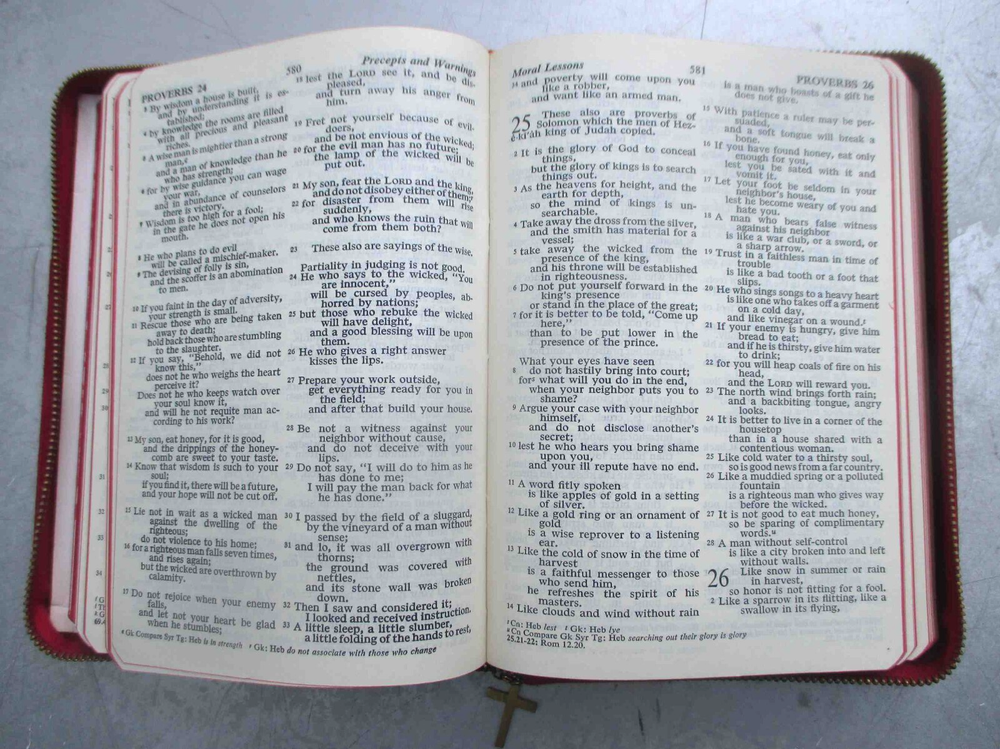 PROVERBS 24
580
Precepts and Warnings
³ By wisdom a house is built,
and by understanding it is es-
tablished;
⁴ by knowledge the rooms are filled
with all precious and pleasant
riches.
⁵ A wise man is mightier than a strong
man,ᵉ
and a man of knowledge than he
who has strength;
⁶ for by wise guidance you can wage
your war,
and in abundance of counselors
there is victory.
⁷ Wisdom is too high for a fool;
in the gate he does not open his
mouth.
⁸ He who plans to do evil
will be called a mischief-maker.
⁹ The devising of folly is sin,
and the scoffer is an abomination
to men.
¹⁰ If you faint in the day of adversity,
your strength is small.
¹¹ Rescue those who are being taken
away to death;
hold back those who are stumbling
to the slaughter.
¹² If you say, "Behold, we did not
know this,"
does not he who weighs the heart
perceive it?
Does not he who keeps watch over
your soul know it,
and will he not requite man ac-
cording to his work?
¹³ My son, eat honey, for it is good,
and the drippings of the honey-
comb are sweet to your taste.
¹⁴ Know that wisdom is such to your
soul;
if you find it, there will be a future,
and your hope will not be cut off.
¹⁵ Lie not in wait as a wicked man
against the dwelling of the
righteous;
do not violence to his home;
¹⁶ for a righteous man falls seven times,
and rises again;
but the wicked are overthrown by
calamity.
¹⁷ Do not rejoice when your enemy
falls,
and let not your heart be glad
when he stumbles;
¹⁸ lest the LORD see it, and be dis-
pleased,
and turn away his anger from
him.
¹⁹ Fret not yourself because of evil-
doers,
and be not envious of the wicked;
²⁰ for the evil man has no future;
the lamp of the wicked will be
put out.
²¹ My son, fear the LORD and the king,
and do not disobey either of them;ᶠ
²² for disaster from them will rise
suddenly,
and who knows the ruin that will
come from them both?
²³ These also are sayings of the wise.
Partiality in judging is not good.
²⁴ He who says to the wicked, "You
are innocent,"
will be cursed by peoples, ab-
horred by nations;
²⁵ but those who rebuke the wicked
will have delight,
and a good blessing will be upon
them.
²⁶ He who gives a right answer
kisses the lips.
²⁷ Prepare your work outside,
get everything ready for you in
the field;
and after that build your house.
²⁸ Be not a witness against your
neighbor without cause,
and do not deceive with your
lips.
²⁹ Do not say, "I will do to him as he
has done to me;
I will pay the man back for what
he has done."
³⁰ I passed by the field of a sluggard,
by the vineyard of a man without
sense;
³¹ and lo, it was all overgrown with
thorns;
the ground was covered with
nettles,
and its stone wall was broken
down.
³² Then I saw and considered it;
I looked and received instruction.
³³ A little sleep, a little slumber,
a little folding of the hands to rest,
ᵉ Gk Compare Syr Tg: Heb is in strength ᶠ Gk: Heb do not associate with those who change
Moral Lessons
581
PROVERBS 26
³⁴ and poverty will come upon you
like a robber,
and want like an armed man.
25 These also are proverbs of
Solomon which the men of Hez-
eki'ah king of Judah copied.
² It is the glory of God to conceal
things,
but the glory of kings is to search
things out.
³ As the heavens for height, and the
earth for depth,
so the mind of kings is un-
searchable.
⁴ Take away the dross from the silver,
and the smith has material for a
vessel;
⁵ take away the wicked from the
presence of the king,
and his throne will be established
in righteousness.
⁶ Do not put yourself forward in the
king's presence
or stand in the place of the great;
⁷ for it is better to be told, "Come up
here,"
than to be put lower in the
presence of the prince.
What your eyes have seen
⁸ do not hastily bring into court;
for what will you do in the end,
when your neighbor puts you to
shame?
⁹ Argue your case with your neighbor
himself,
and do not disclose another's
secret;
¹⁰ lest he who hears you bring shame
upon you,
and your ill repute have no end.
¹¹ A word fitly spoken
is like apples of gold in a setting
of silver.
¹² Like a gold ring or an ornament of
gold
is a wise reprover to a listening
ear.
¹³ Like the cold of snow in the time of
harvest
is a faithful messenger to those
who send him,
he refreshes the spirit of his
masters.
¹⁴ Like clouds and wind without rain
is a man who boasts of a gift he
does not give.
¹⁵ With patience a ruler may be per-
suaded,
and a soft tongue will break a
bone.
¹⁶ If you have found honey, eat only
enough for you,
lest you be sated with it and
vomit it.
¹⁷ Let your foot be seldom in your
neighbor's house,
lest he become weary of you and
hate you.
¹⁸ A man who bears false witness
against his neighbor
is like a war club, or a sword, or
a sharp arrow.
¹⁹ Trust in a faithless man in time of
trouble
is like a bad tooth or a foot that
slips.
²⁰ He who sings songs to a heavy heart
is like one who takes off a garment
on a cold day,
and like vinegar on a wound.
²¹ If your enemy is hungry, give him
bread to eat;
and if he is thirsty, give him water
to drink;
²² for you will heap coals of fire on his
head,
and the LORD will reward you.
²³ The north wind brings forth rain;
and a backbiting tongue, angry
looks.
²⁴ It is better to live in a corner of the
housetop
than in a house shared with a
contentious woman.
²⁵ Like cold water to a thirsty soul,
so is good news from a far country.
²⁶ Like a muddied spring or a polluted
fountain
is a righteous man who gives way
before the wicked.
²⁷ It is not good to eat much honey,
so be sparing of complimentary
words.
²⁸ A man without self-control
is like a city broken into and left
without walls.
26 Like snow in summer or rain
in harvest,
so honor is not fitting for a fool.
² Like a sparrow in its flitting, like a
swallow in its flying,
Cn: Heb lest Gk: Heb lye
Cn Compare Gk Syr Tg: Heb searching out their glory is glory
25.21-22: Rom 12.20.